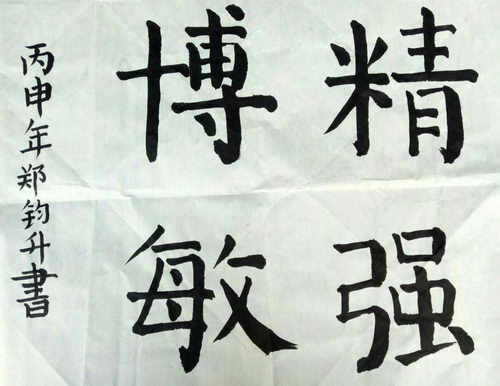 精强
博敏
丙申年郑钧升書